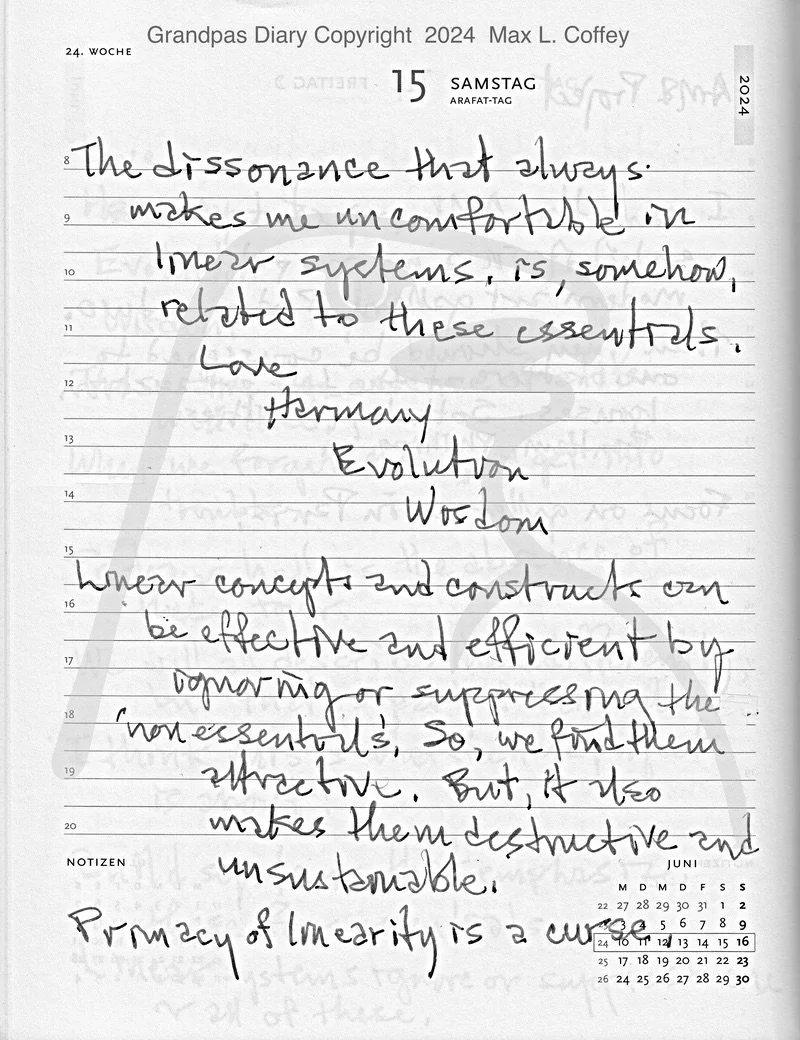 Grandpas Diary Copyright 2024 Max L. Coffey
24. WOCHE
15 SAMSTAG
ARAFAT-TAG
2024
8 The dissonance that always
9 makes me uncomfortable in
10 linear systems, is, somehow,
11 related to these essentials.
Love
12
Harmony
13 Evolution
14 Wosdom
15
Linear concepts and constructs can
16
be effective and efficient by
17
ignoring or suppressing the
18 'nonessentials'. So, we find them
19 attractive. But, it also
20 makes them destructive and
NOTIZEN
unsustainable.
Primacy of linearity is a curse,
JUNI
M D M D F S S
22 27 28 29 30 31 1 2
3 5 6 7 8 9
24 10 11 12 13 14 15 16
25 17 18 19 20 21 22 23
26 24 25 26 27 28 29 30